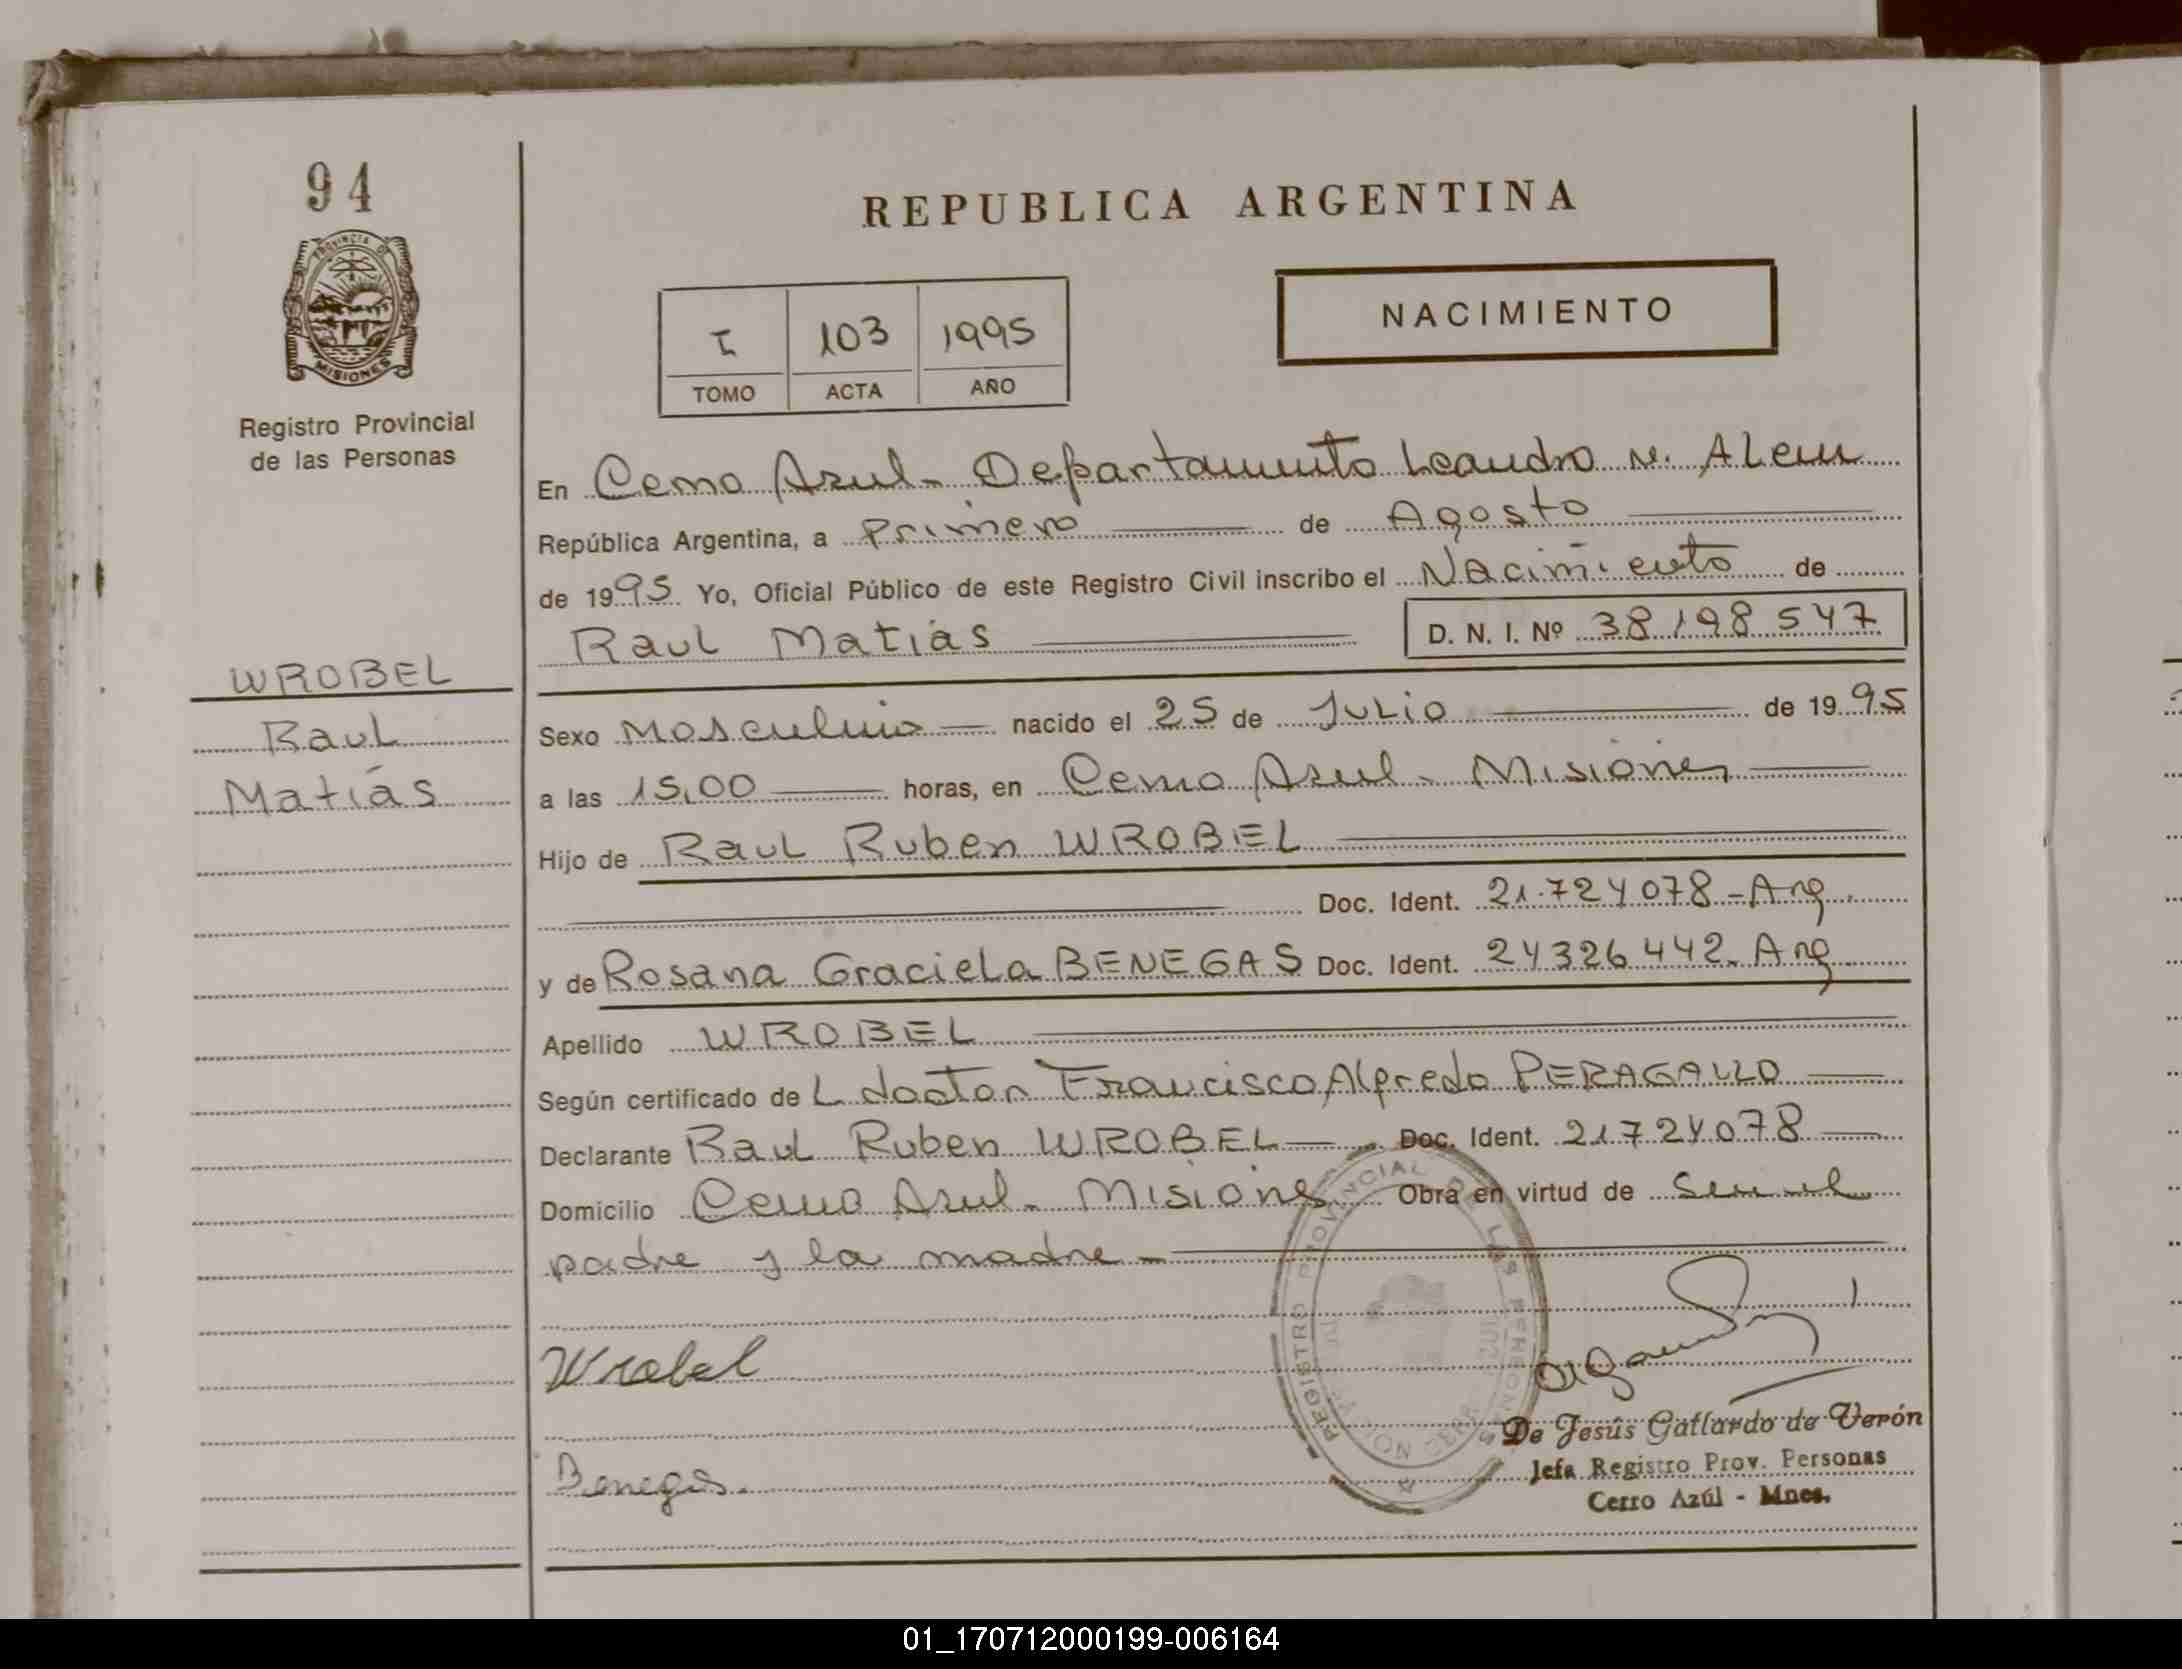 94
PROVINCIA DE
MISIONES
Registro Provincial
de las Personas
WROBEL
Raul
Matías
REPUBLICA ARGENTINA
I 103 1995
TOMO ACTA AÑO
NACIMIENTO
En Cerro Azul - Departamento Leandro N. Alem
República Argentina, a primero de Agosto
de 1995 Yo, Oficial Público de este Registro Civil inscribo el Nacimiento de
Raul Matías D. N. I. Nº 38198547
Sexo Masculino nacido el 25 de Julio de 1995
a las 15,00 horas, en Cerro Azul - Misiones
Hijo de Raul Ruben WROBEL
Doc. Ident. 21.724078 - Arg.
y de Rosana Graciela BENEGAS Doc. Ident. 24326442 - Arg
Apellido WROBEL
Según certificado de L doctor Francisco Alfredo PERAGALLO
Declarante Raul Ruben WROBEL Doc. Ident. 21724078
Domicilio Cerro Azul - Misiones Obra en virtud de ser el
padre y la madre -
Wrobel
Benegas.
REGISTRO PROVINCIAL DE LAS PERSONAS
De Jesús Gallardo de Verón
Jefa Registro Prov. Personas
Cerro Azúl - Mnes.
01_170712000199-006164